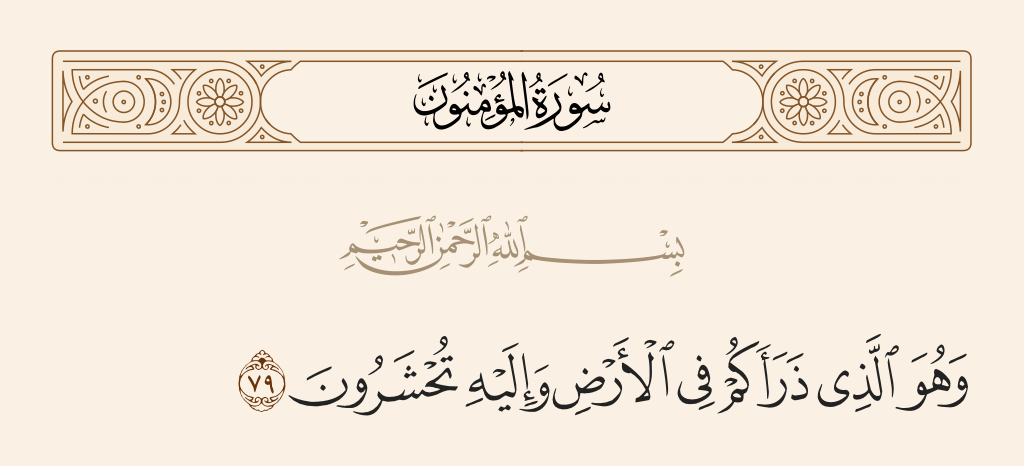 سُورَةُ الْمُؤْمِنُونَ
بِسْمِ ٱللَّهِ ٱلرَّحْمَٰنِ ٱلرَّحِيمِ
وَهُوَ ٱلَّذِى ذَرَأَكُمْ فِى ٱلْأَرْضِ وَإِلَيْهِ تُحْشَرُونَ ٧٩